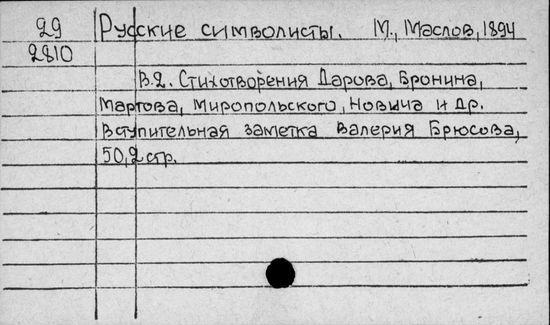 29 Русские символисты. М., Маслов, 1894
2810
В.2. Стихотворения Дарова, Бронина,
Мартова, Миропольского, Новича и др.
Вступительная заметка Валерия Брюсова,
50,2 стр.